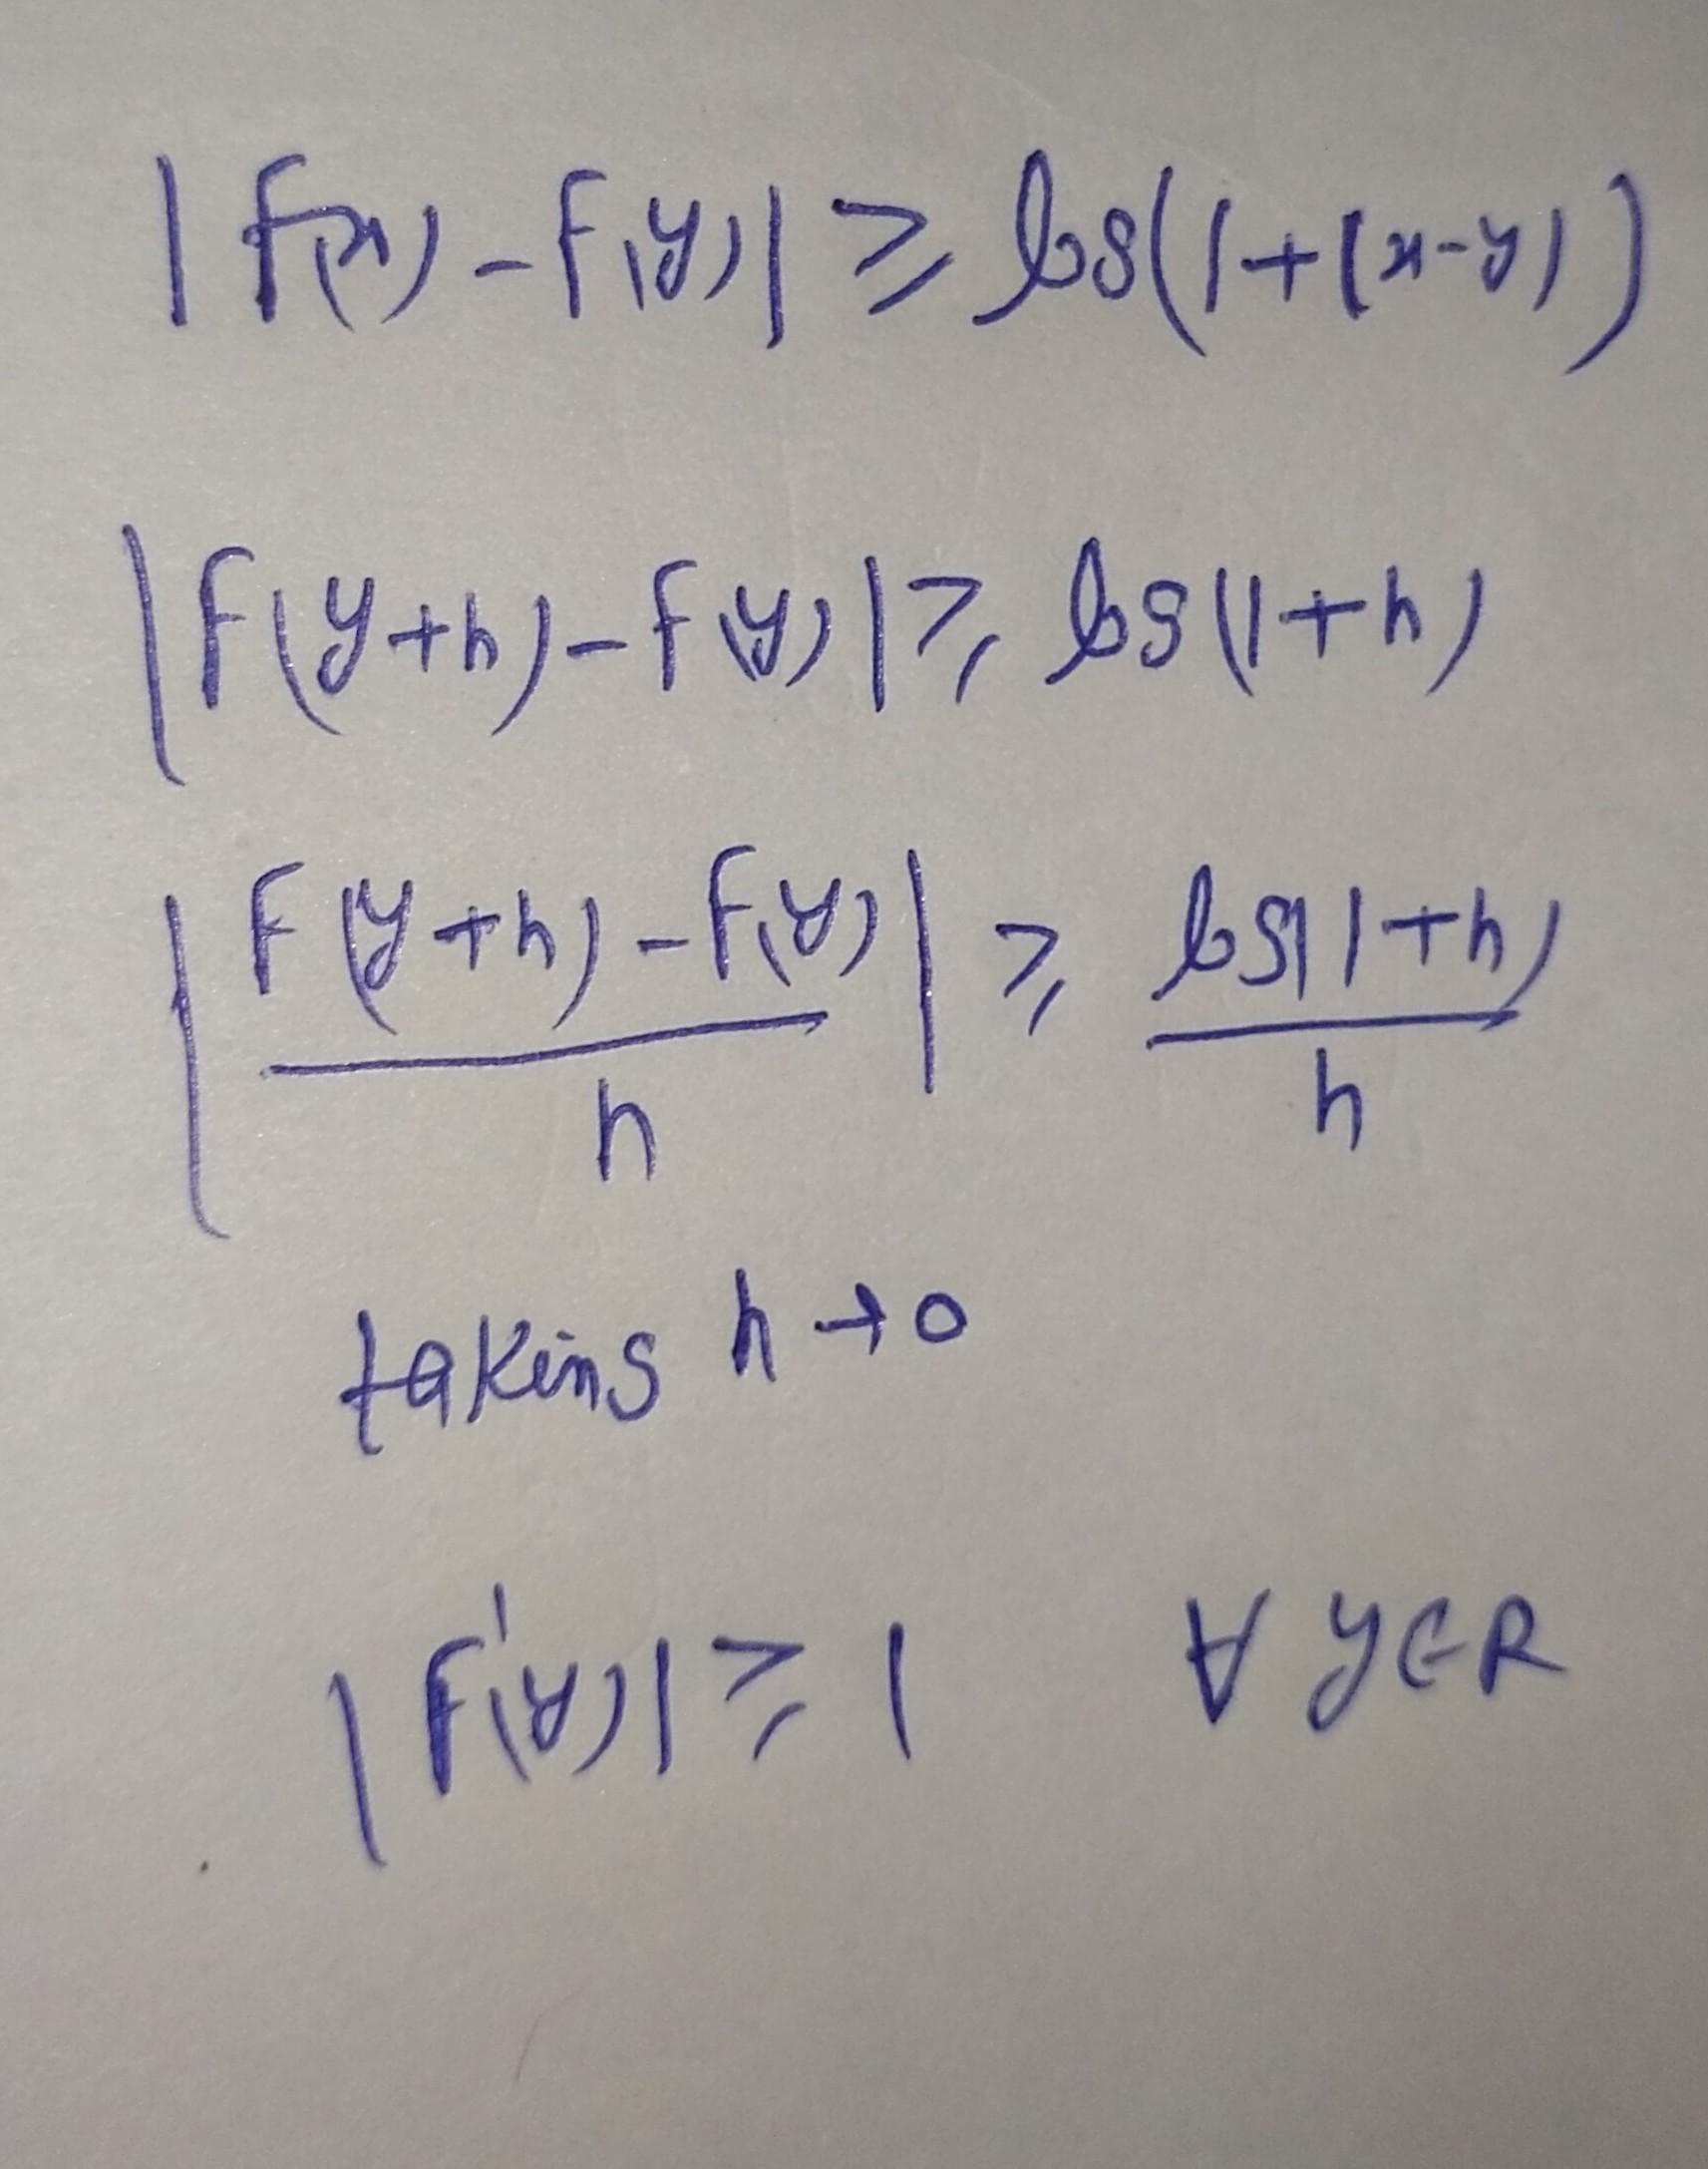 |f(x) - f(y)| ≥ log(1+|x-y|)
|f(y+h) - f(y)| ≥ log(1+h)
|f(y+h) - f(y) / h| ≥ log(1+h) / h
taking h→0
|f'(y)| ≥ 1 ∀ y∈R